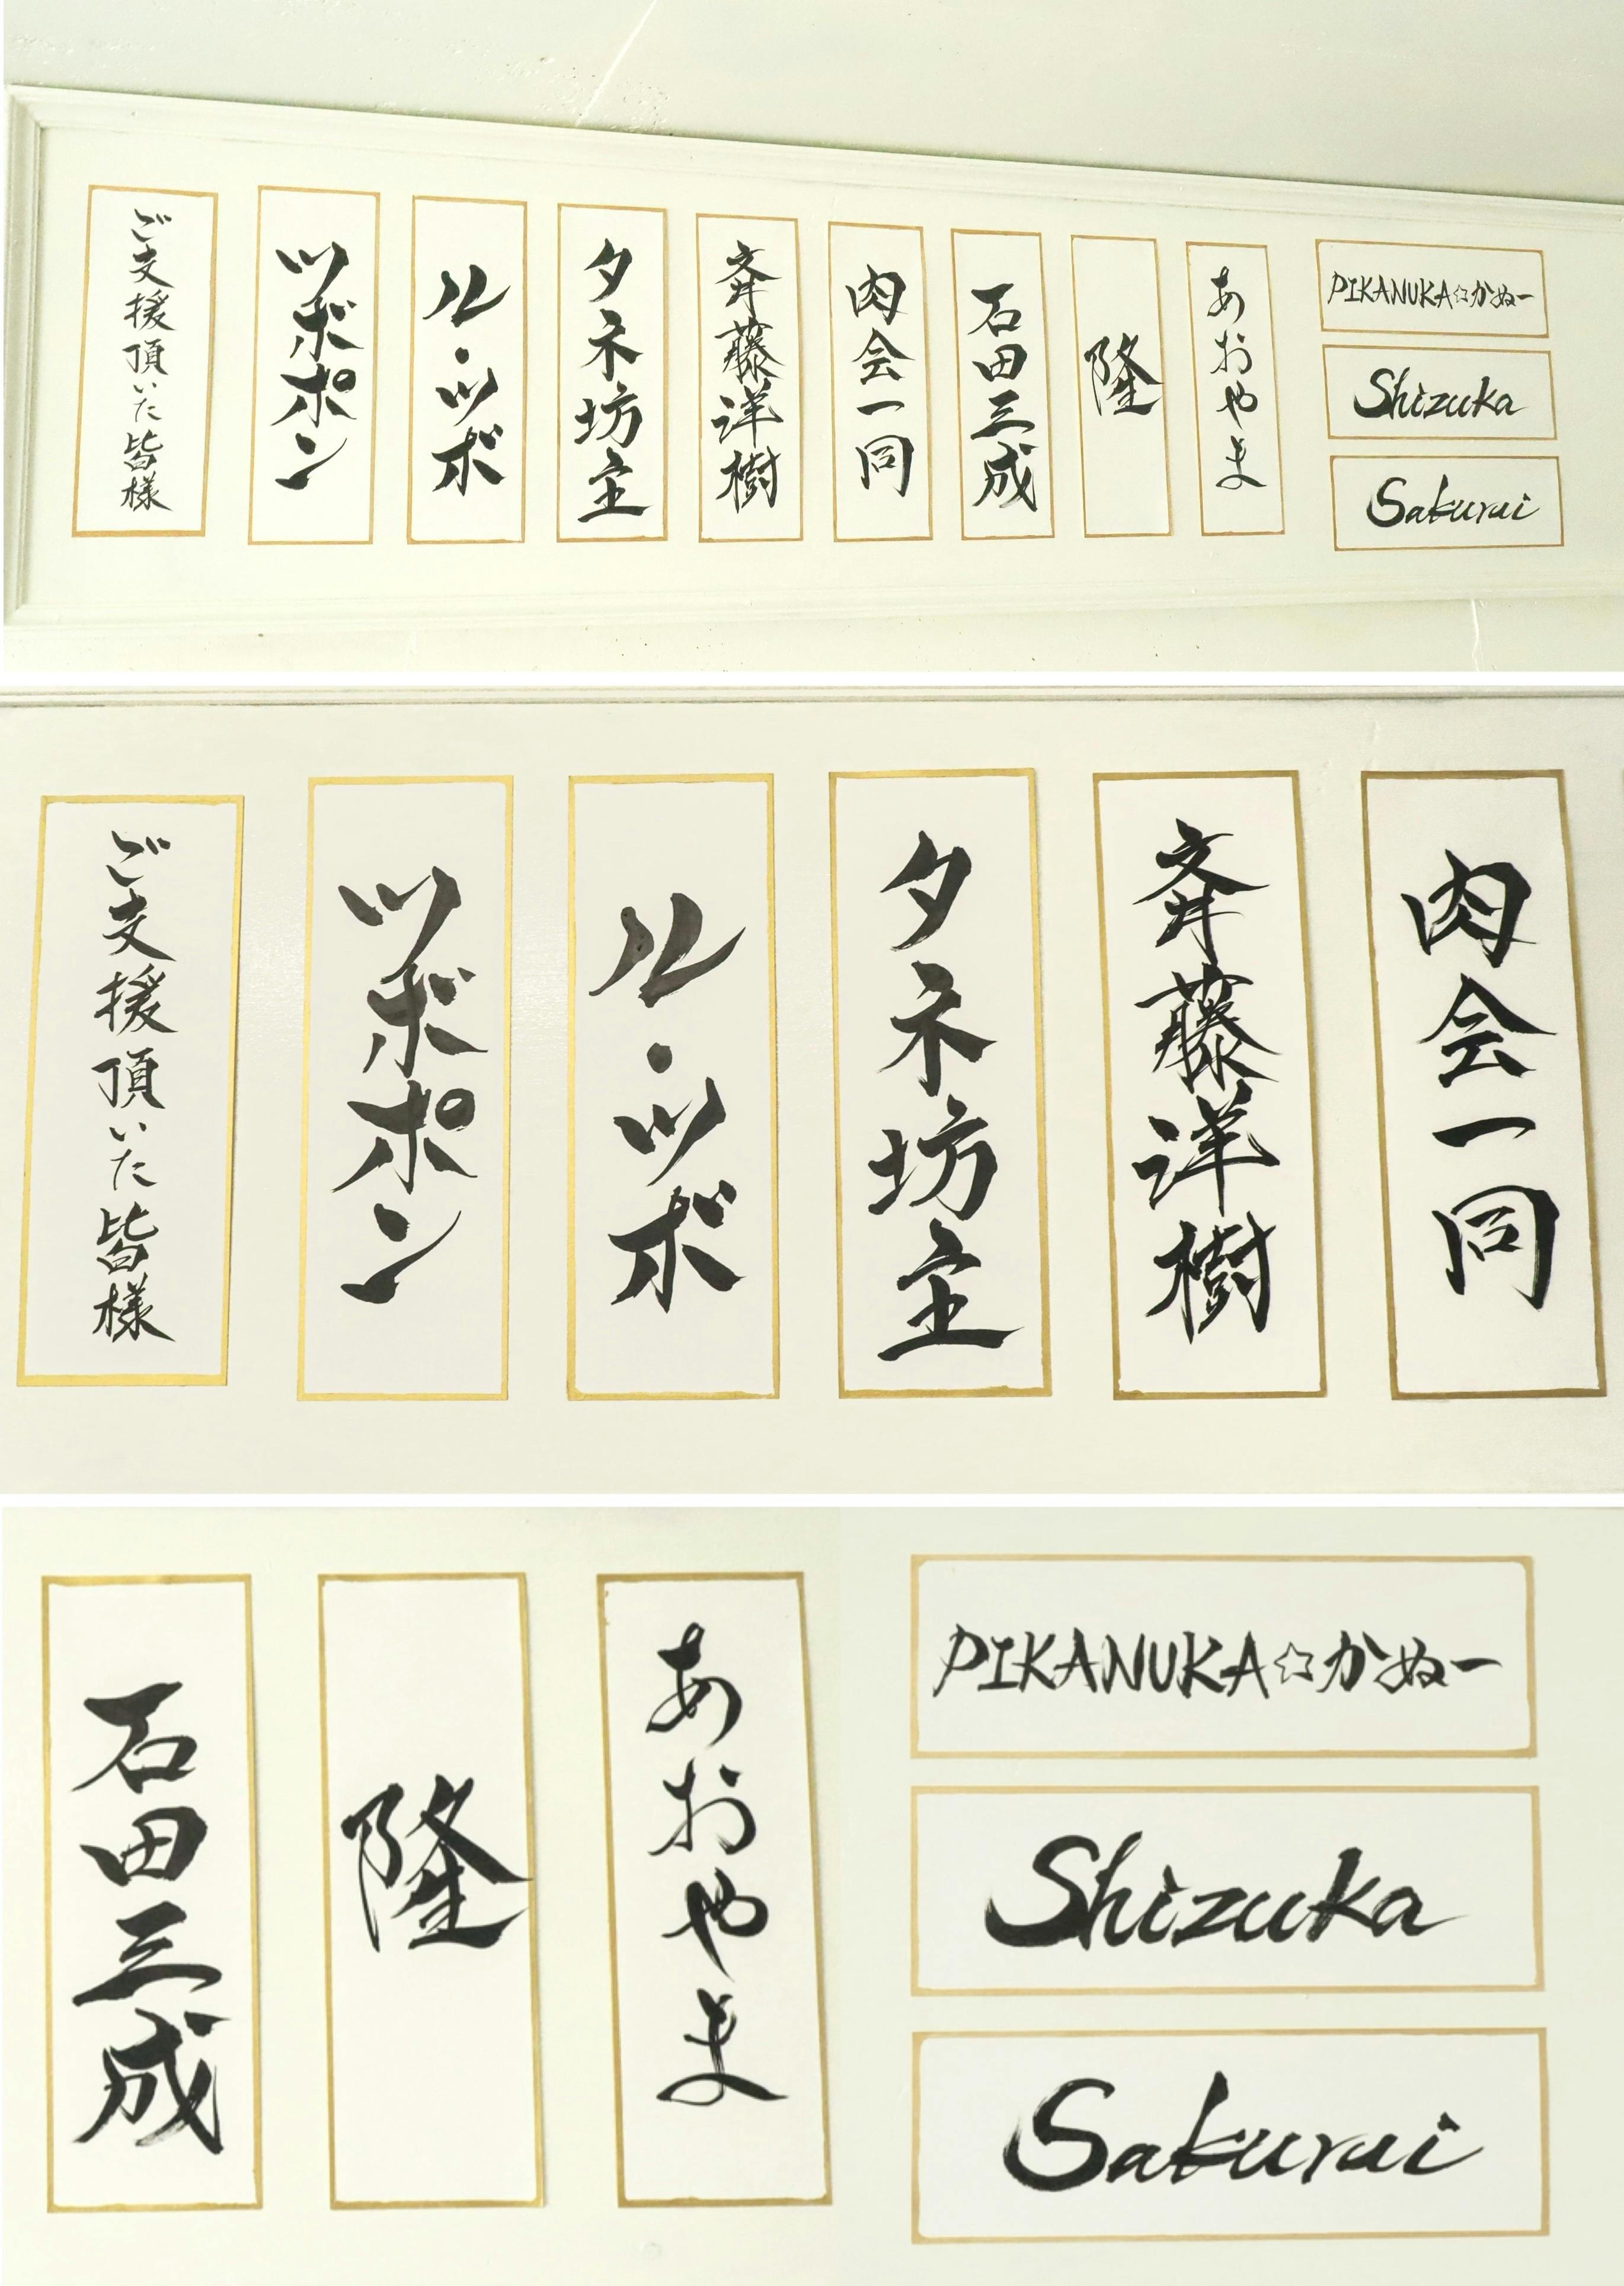 ご支援頂いた皆様
ツボポン
ル・ツボ
タネ坊主
斉藤洋樹
肉会一同
石田三成
隆
あおやま
PIKANUKA☆かぬー
Shizuka
Sakurai
ご支援頂いた皆様
ツボポン
ル・ツボ
タネ坊主
斉藤洋樹
肉会一同
石田三成
隆
あおやま
PIKANUKA☆かぬー
Shizuka
Sakurai